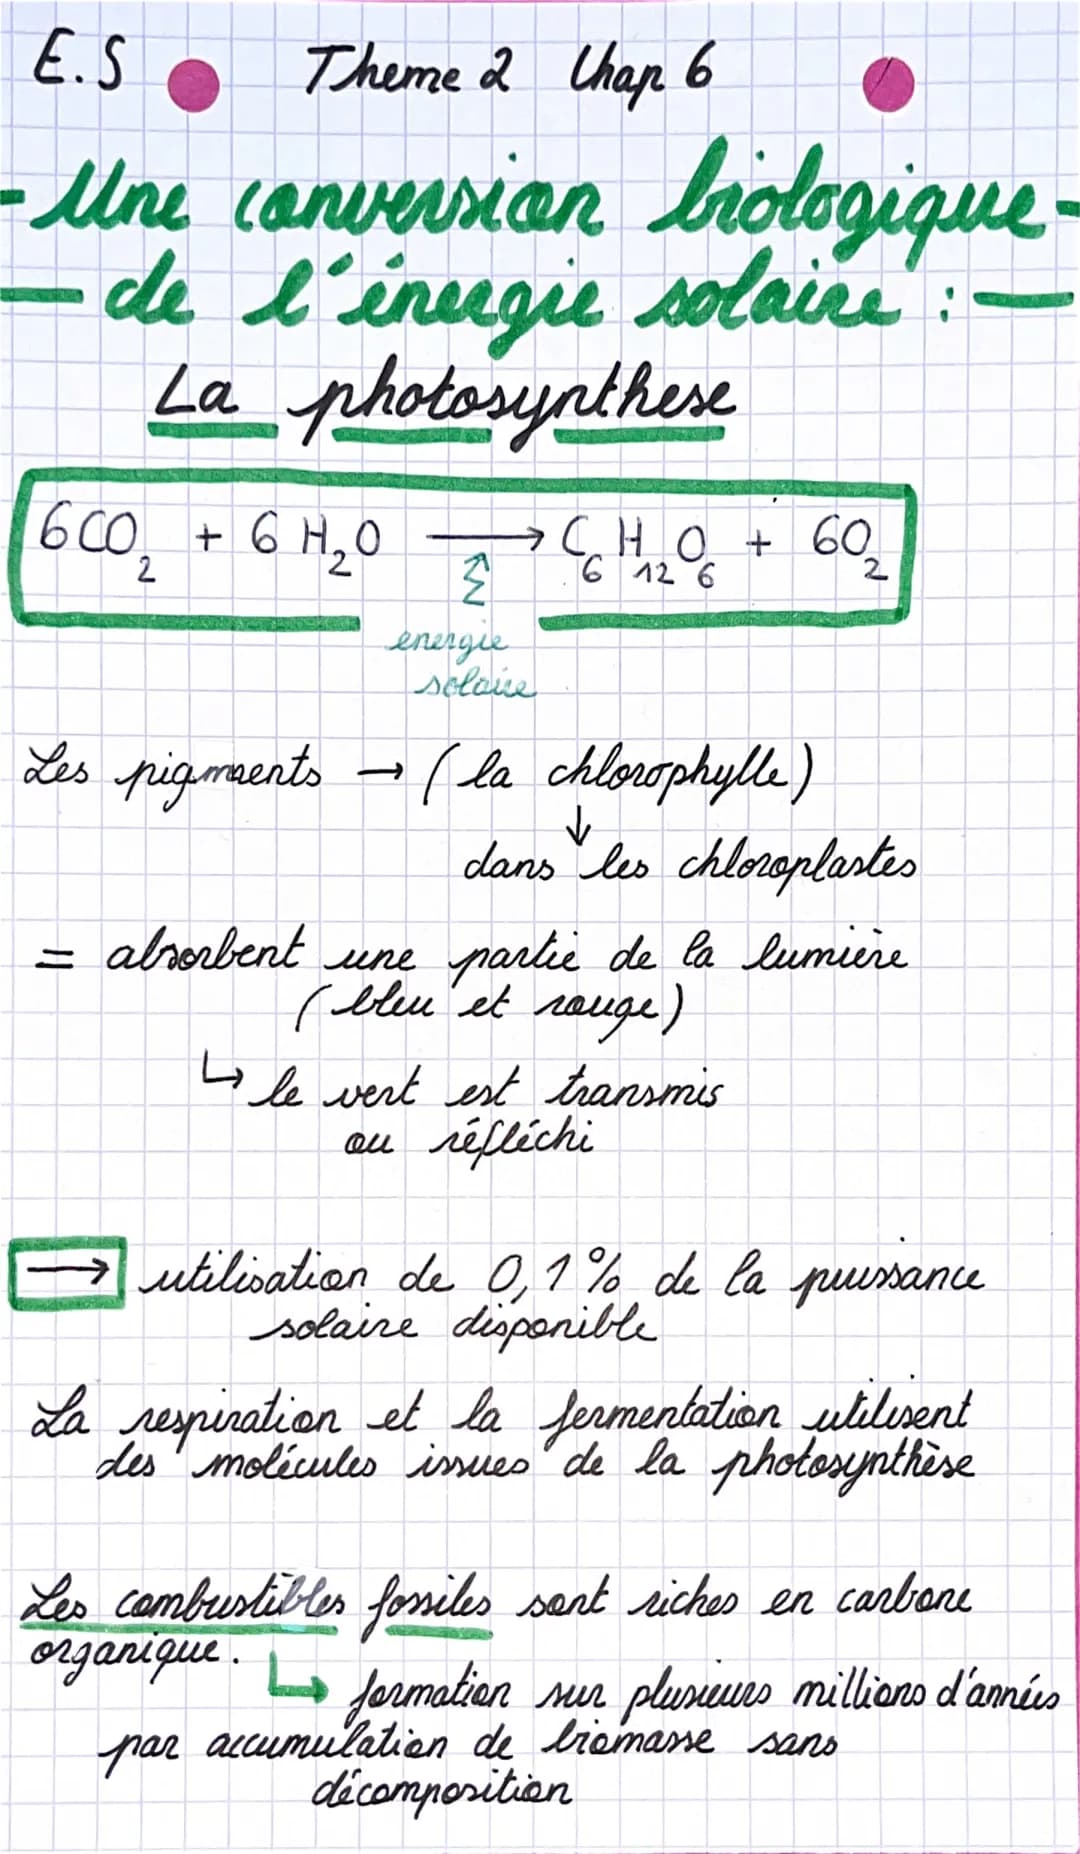 E.S Theme 2 Chap 6
- Une conversion biologique -
- de l'énergie solaire : -
La photosynthese
6CO2 + 6 H2O → C6H12O6 + 6O2
energie
solaire
Les pigments → (la chlorophylle)
↓
dans les chloroplastes
= absorbent une partie de la lumière
(bleu et rouge)
↳ le vert est transmis
ou réfléchi
→ utilisation de 0,1% de la puissance
solaire disponible
La respiration et la fermentation utilisent
des molécules issues de la photosynthèse
Les combustibles fossiles sont riches en carbone
organique.
↳ formation sur plusieurs millions d'années
par accumulation de biomasse sans
décomposition